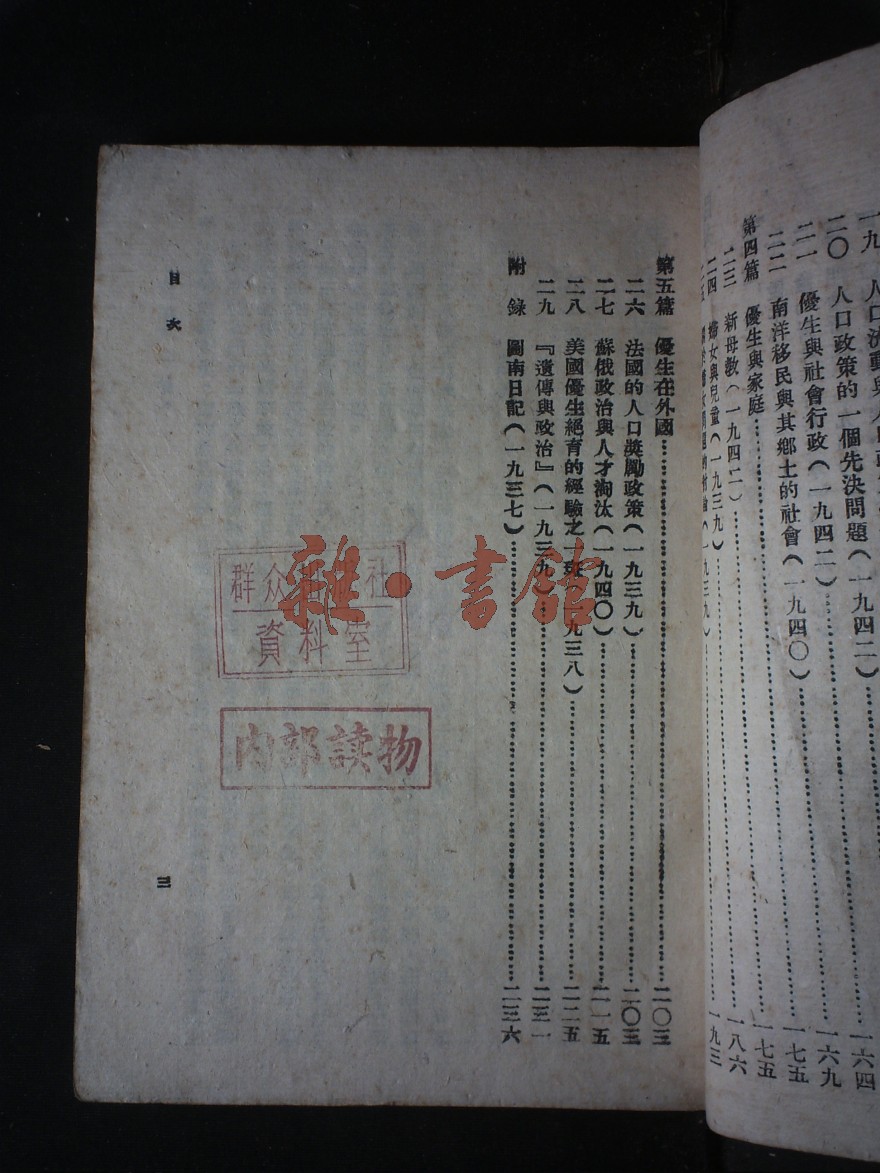 二〇 人口政策的一個先決問題(一九四二)……一六四
二一 優生與社會行政(一九四二)……一六九
二二 南洋移民與其鄉土的社會(一九四〇)……一七五
第四篇 優生與家庭……一七五
二三 新母教(一九四二)……一八六
二四 婦女與兒童(一九三九)……一九三
第五篇 優生在外國……二〇三
二六 法國的人口獎勵政策(一九三九)……二〇三
二七 蘇俄政治與人才淘汰(一九四〇)……二一五
二八 美國優生絕育的經驗之一班(一九三八)……二二五
二九 『遺傳與政治』(一九三九)……二三一
附錄 圖南日記(一九三七)……二三六
目次
三
群众出版社
資料室
内部读物
雜·書館